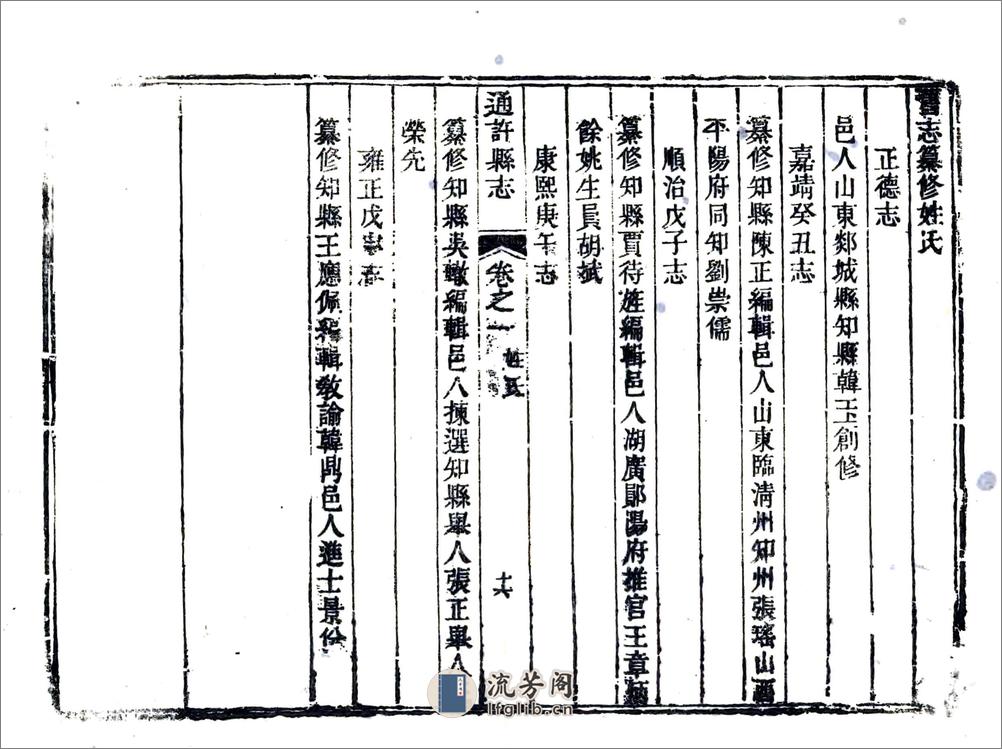 舊志纂修姓氏
正德志
邑人山東郯城縣知縣韓玉創修
嘉靖癸丑志
纂修知縣陳正編輯邑人山東臨清州知州張瑤山西
平陽府同知劉崇儒
順治戊子志
纂修知縣賈待旌編輯邑人湖廣鄖陽府推官王章炳
餘姚生員胡斌
康熙庚午志
通許縣志
卷之一
姓氏
十六
纂修知縣吳轍編輯邑人揀選知縣舉人張正舉人
榮先
雍正戊志
纂修知縣王應佩編輯敎諭韓鼎邑人進士景份
流芳阁
lfglib.cn